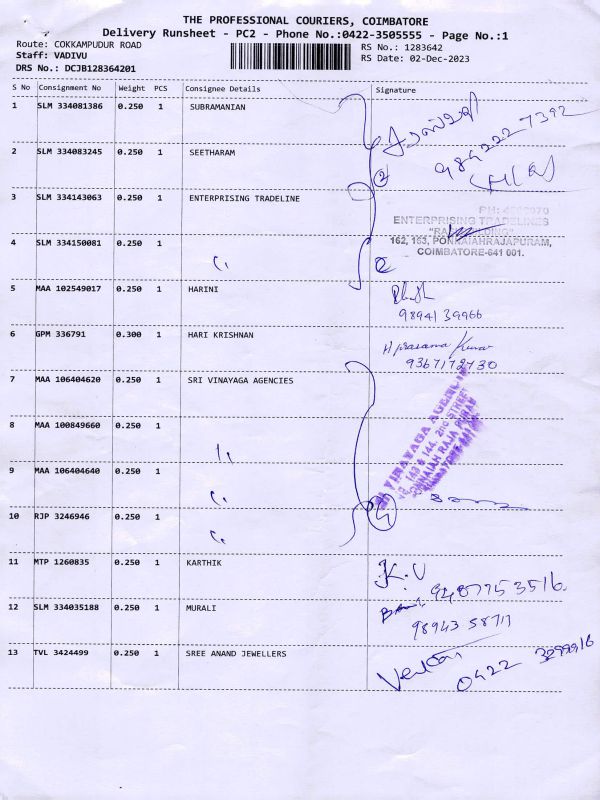 THE PROFESSIONAL COURIERS, COIMBATORE
Delivery Runsheet - PC2 - Phone No.:0422-3505555 - Page No.:1
Route: COKKAMPUDUR ROAD RS No.: 1283642
Staff: VADIVU RS Date: 02-Dec-2023
DRS No.: DCJB128364201
S No Consignment No Weight PCS Consignee Details Signature
1 SLM 334081386 0.250 1 SUBRAMANIAN
9842227392
2 SLM 334083245 0.250 1 SEETHARAM 2
3 SLM 334143063 0.250 1 ENTERPRISING TRADELINE
ENTERPRISING TRADELINES
162, 163, PONNAIAHRAJAPURAM,
COIMBATORE-641 001.
4 SLM 334150081 0.250 1 ",
5 MAA 102549017 0.250 1 HARINI
9894139966
6 GPM 336791 0.300 1 HARI KRISHNAN H prasanna Kumar
9367172730
7 MAA 106404620 0.250 1 SRI VINAYAGA AGENCIES
VINAYAGA AGENCIES
143 & 144, 2ND STREET
PONNAIAH RAJA PURAM
8 MAA 100849660 0.250 1 ",
9 MAA 106404640 0.250 1 ",
10 RJP 3246946 0.250 1 ", 4
11 MTP 1260835 0.250 1 KARTHIK K.U
9487753516.
12 SLM 334035188 0.250 1 MURALI
98943 58711
13 TVL 3424499 0.250 1 SREE ANAND JEWELLERS
0422 3299916